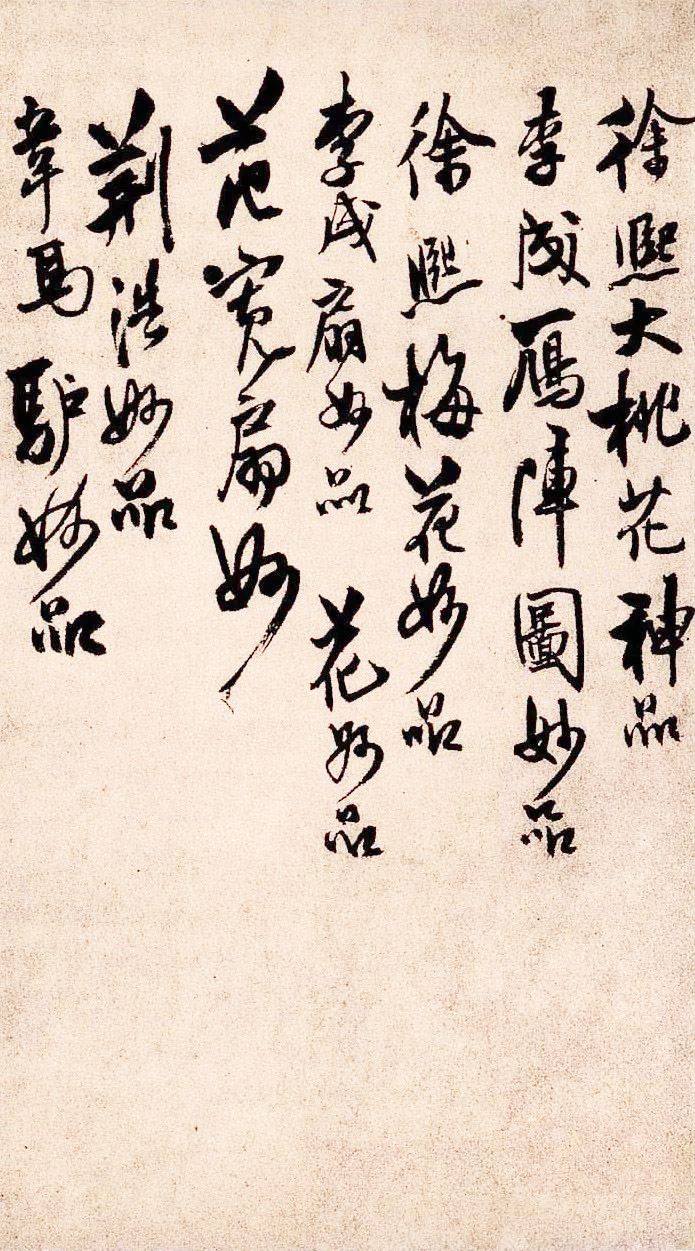 徐熙大桃花神品
李成雁陣圖妙品
徐熙梅花妙品
李成扇妙品 花妙品
范寬扇妙
荆浩妙品
韋馬驴妙品